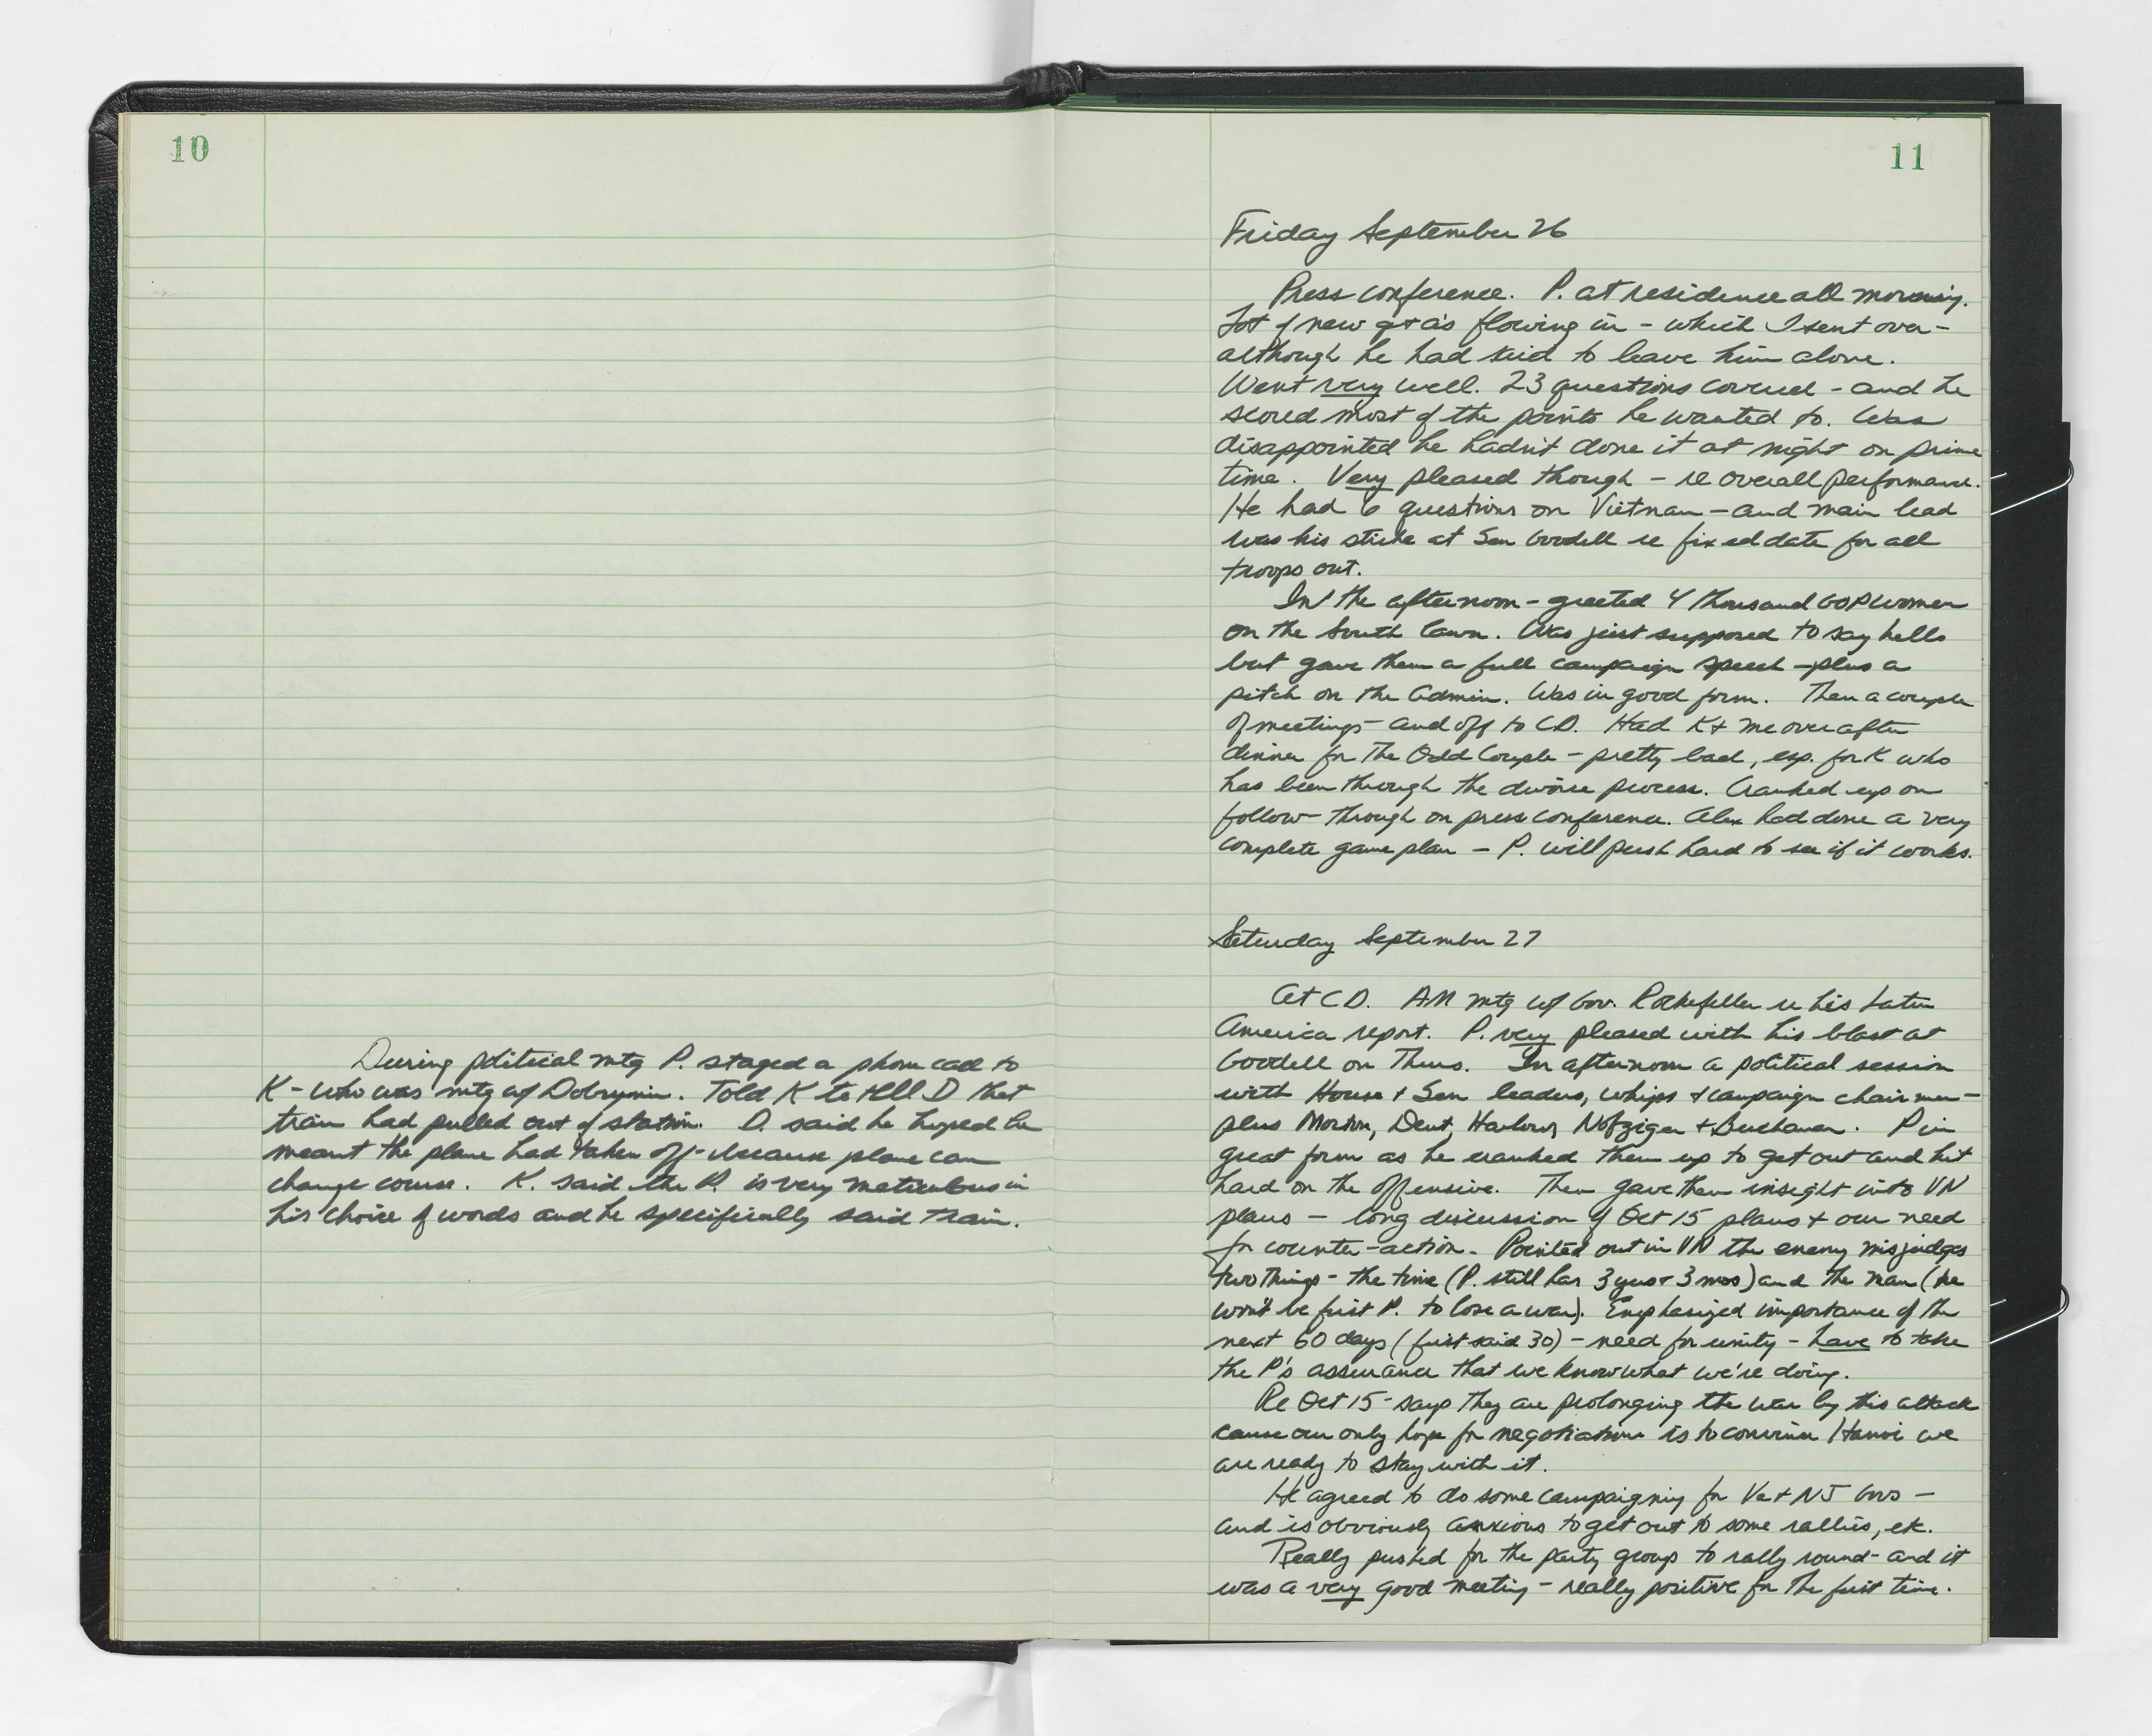 10
During political mtg P. staged a phone call to
K - who was mtg w/ Dobrynin. Told K to tell D that
train had pulled out of station. D. said he hoped he
meant the plane had taken off - because plane can
change course. K. said the P. is very meticulous in
his choice of words and he specifically said train.
11
Friday September 26
Press conference. P. at residence all morning.
Lot of new q+a's flowing in - which I sent over -
although he had said to leave him alone.
Went very well. 23 questions covered - and he
scored most of the points he wanted to. Was
disappointed he hadn't done it at night on prime
time. Very pleased though - re overall performance.
He had 6 questions on Vietnam - and main lead
was his strike at Sen Goodell re fixed date for all
troops out.
In the afternoon - greeted 4 thousand GOP women
on the South lawn. Was just supposed to say hello
but gave them a full campaign speech - plus a
pitch on the Admin. Was in good form. Then a couple
of meetings - and off to CD. Had K + me over after
dinner for The Odd Couple - pretty bad, esp. for K who
has been through the divorce process. Cranked up on
follow-through on press conference. Alex had done a very
complete game plan - P. will push hard to see if it works.
Saturday September 27
At CD. AM mtg w/ Gov. Rockefeller re his Latin
America report. P. very pleased with his blast at
Goodell on Thurs. In afternoon a political session
with House + Sen leaders, whips + campaign chairmen -
plus Morton, Dent, Harlow, Nofziger + Buchanan. P in
great form as he cranked them up to get out and hit
hard on the offensive. Then gave them insight into VN
plans - long discussion of Oct 15 plans + our need
for counter-action. Pointed out in VN the enemy misjudges
two things - the time (P. still has 3 yrs + 3 mos) and the man (he
won't be first P. to lose a war). Emphasized importance of the
next 60 days (first said 30) - need for unity - have to take
the P's assurance that we know what we're doing.
Re Oct 15 - says they are prolonging the war by this attack
cause our only hope for negotiation is to convince Hanoi we
are ready to stay with it.
He agreed to do some campaigning for Va + NJ Govs -
and is obviously anxious to get out to some rallies, etc.
Really pushed for the party group to rally round - and it
was a very good meeting - really positive for the first time.